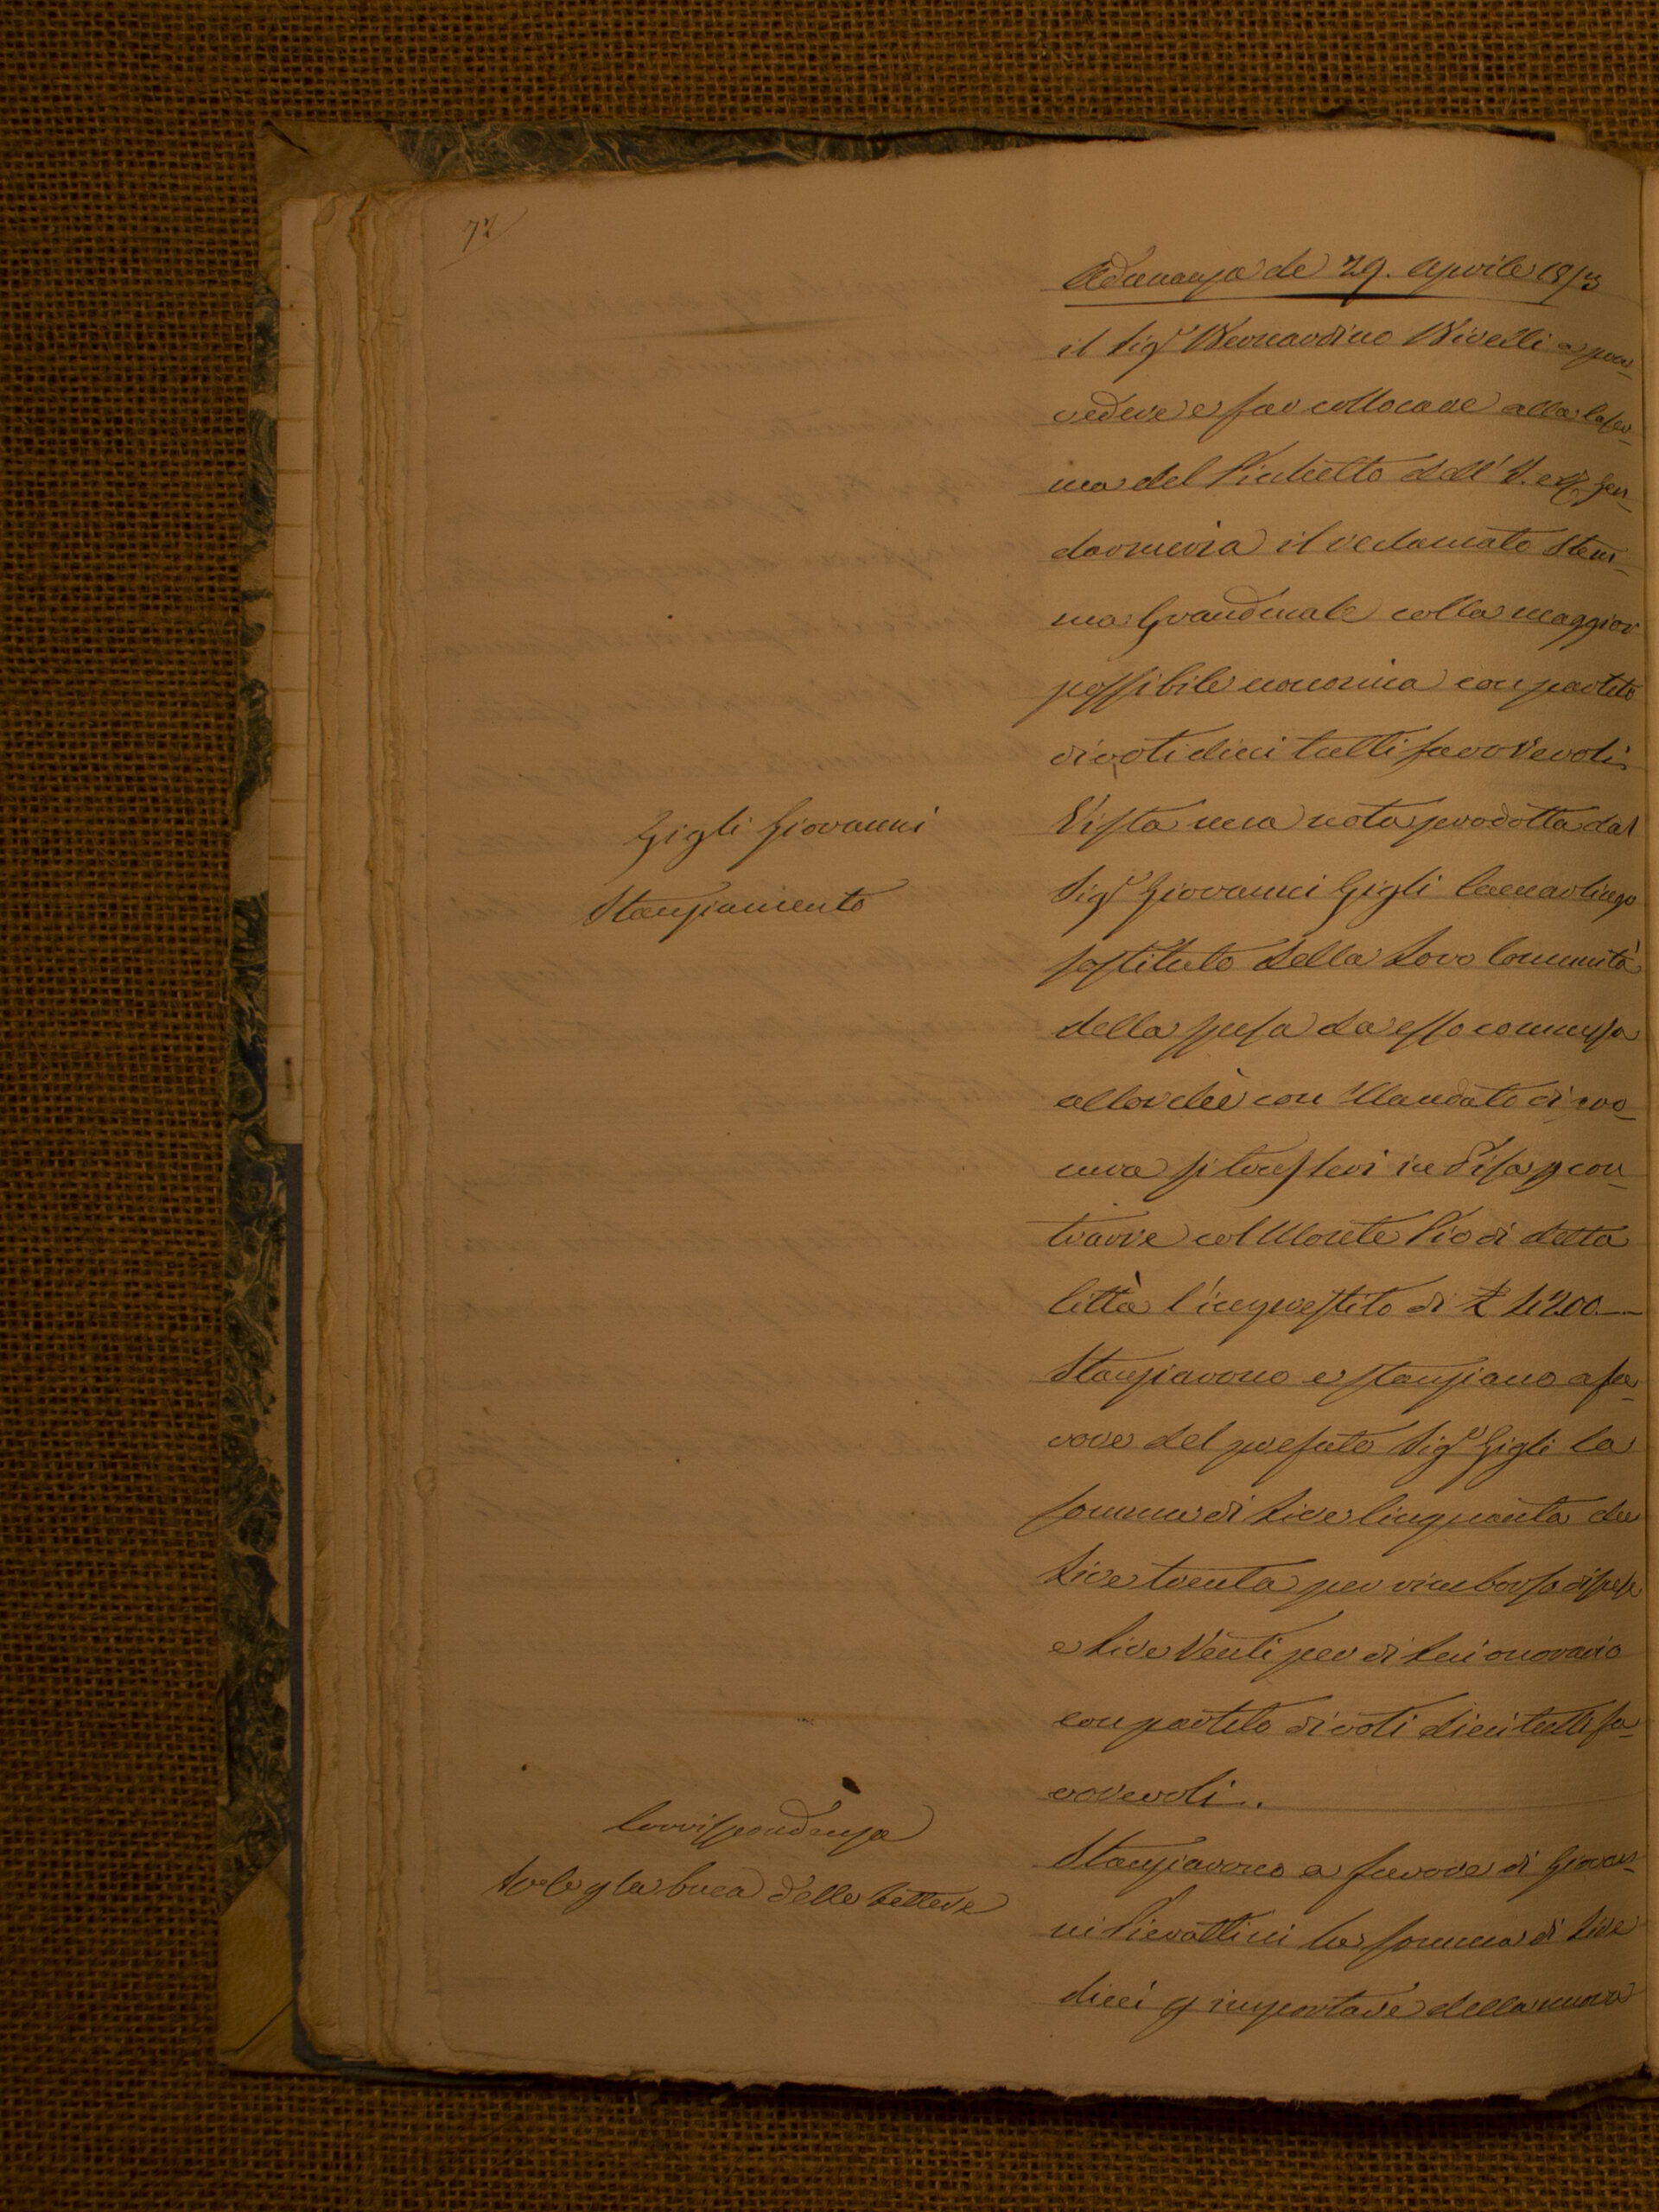 72
Adunanza de 29. Aprile 1853
il Sigr Bernardino Rivelli a prov-
vedere e far collocare alla Caser-
ma del Picchetto dell' I. e R. Gen-
darmeria il reclamato Stem-
ma Granducale colla maggior
possibile economia con partito
di voti dieci tutti favorevoli.
Gigli Giovanni
Stanziamento
Vista una nota prodotta dal
Sigr Giovanni Gigli Camarlingo
sostituto della Loro Comunità
della spesa da esso commessa
allorchè con Mandato di pro-
cura si trasferì in Pisa p con-
trarre col Monte Pio di detta
Città l'imprestito di £ 4200.—
Stanziarono e stanziano a fa-
vore del prefato Sigr Gigli la
somma di Lire Cinquanta che
Lire trenta per rimborso di spese
e Lire Venti per di Lui onorario
con partito di voti dieci tutti fa-
vorevoli.
Corrispondenza
p la buca delle Lettere
Stanziarono a favore di Giovan-
ni Pierattini la somma di Lire
dieci p importare della nuova